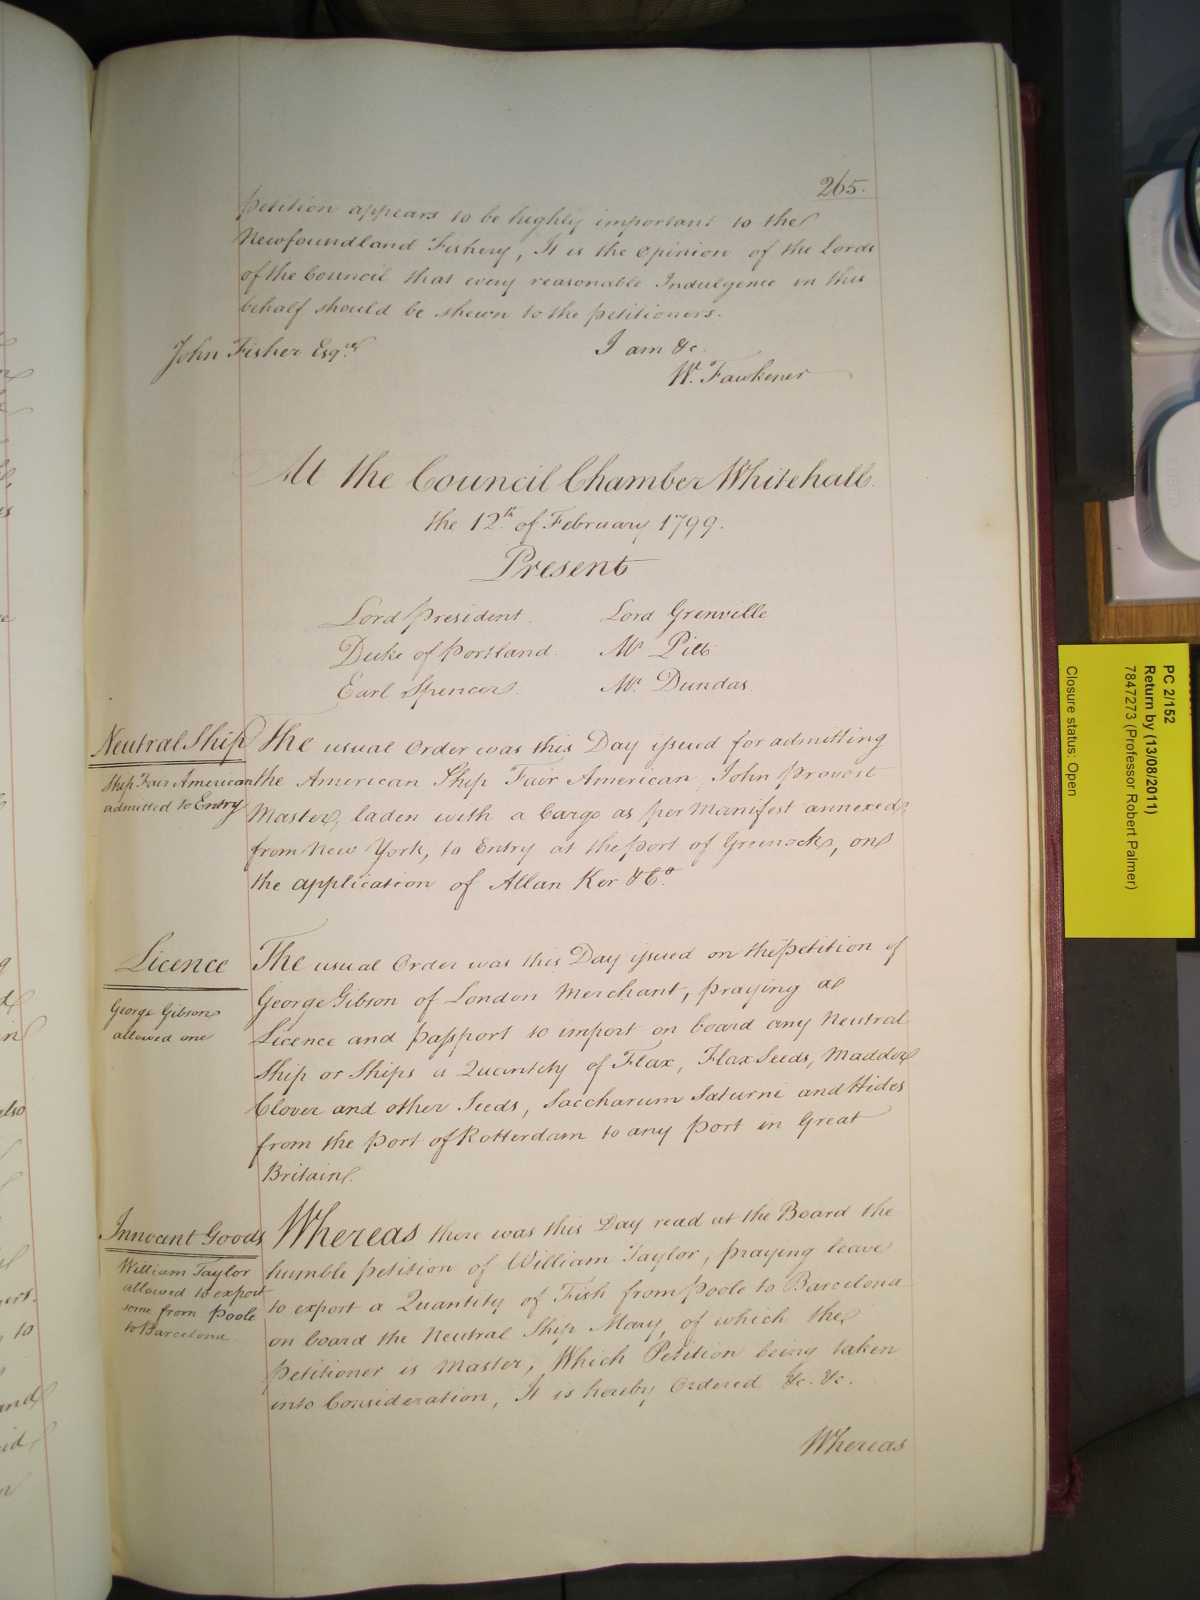 265.
petition appears to be highly important to the
Newfoundland Fishery, It is the Opinion of the Lords
of the Council that every reasonable Indulgence in this
behalf should be shewn to the petitioners.
John Fisher Esqre. I am &c.
W. Fawkener
At the Council Chamber Whitehall.
the 12th. of February 1799.
Present
Lord President. Lord Grenville
Duke of Portland. Mr Pitt
Earl Spencer. Mr. Dundas
Neutral Ship
Ship Fair American
admitted to Entry
The usual Order was this Day issued for admitting
the American Ship Fair American, John Provost
Master, laden with a Cargo as per Manifest annexed
from New York, to Entry at the port of Greenock, on
the application of Allan Ker & Co.
Licence
George Gibson
allowed one
The usual Order was this Day issued on the petition of
George Gibson of London Merchant, praying a
Licence and passport to import on board any Neutral
Ship or Ships a Quantity of Flax, Flax Seeds, Madder
Clover and other Seeds, Saccharum Saturni and Hides
from the Port of Rotterdam to any port in Great
Britain.
Innocent Goods
William Taylor
allowed to export
some from Poole
to Barcelona
Whereas there was this Day read at the Board the
humble petition of William Taylor, praying leave
to export a Quantity of Fish from Poole to Barcelona
on board the Neutral Ship Mary, of which the
Petitioner is Master, Which Petition being taken
into Consideration, It is hereby Ordered &c. &c.
Whereas
PC 2/152
Return by (13/08/2011)
7847273 (Professor Robert Palmer)
Closure status: Open